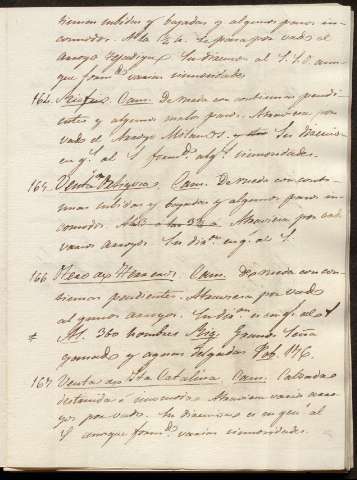 tienen subidas y bajadas y algunos pasos in-
comodos. A la se pasa por vado el
arroyo Su direccion al S.S.O. aun-
que form.do varias sinuosidades
164. Cam. De rueda con continuas pendi-
entes y algunos malos pasos. Atraviesa por
vado el Arroyo Molinos. y Su direccion
en g.l al S form.do alg.s sinuosidades.
165. Venta Cam. De rueda con conti-
nuas subidas y bajadas y algunos pasos in-
comodos. Atraviesa por vado
varios arroyos. Su dir.on en g.l al S.
166 de Herreros. Cam. de rueda con con-
tinuas pendientes. Atraviesa por vado
algunos arroyos. Su dir.on es en g.l al S
# Al. 360 hombres Grano Leña
ganado y aguas delgadas Pob. 176.
167 Venta de S.ta Catalina. Cam. Calzada
destruida é Atraviesa varios arro-
yos por vado. Su direccion es en gen.l al
S aunque form.do varias sinuosidades.